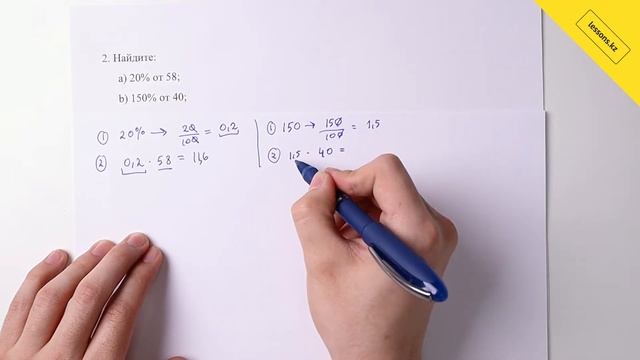 lessons.kz
2. Найдите:
a) 20% от 58;
b) 150% от 40;
① 20% → 20/100 = 0,2
② 0,2 · 58 = 11,6
① 150 → 150/100 = 1,5
② 1,5 · 40 =